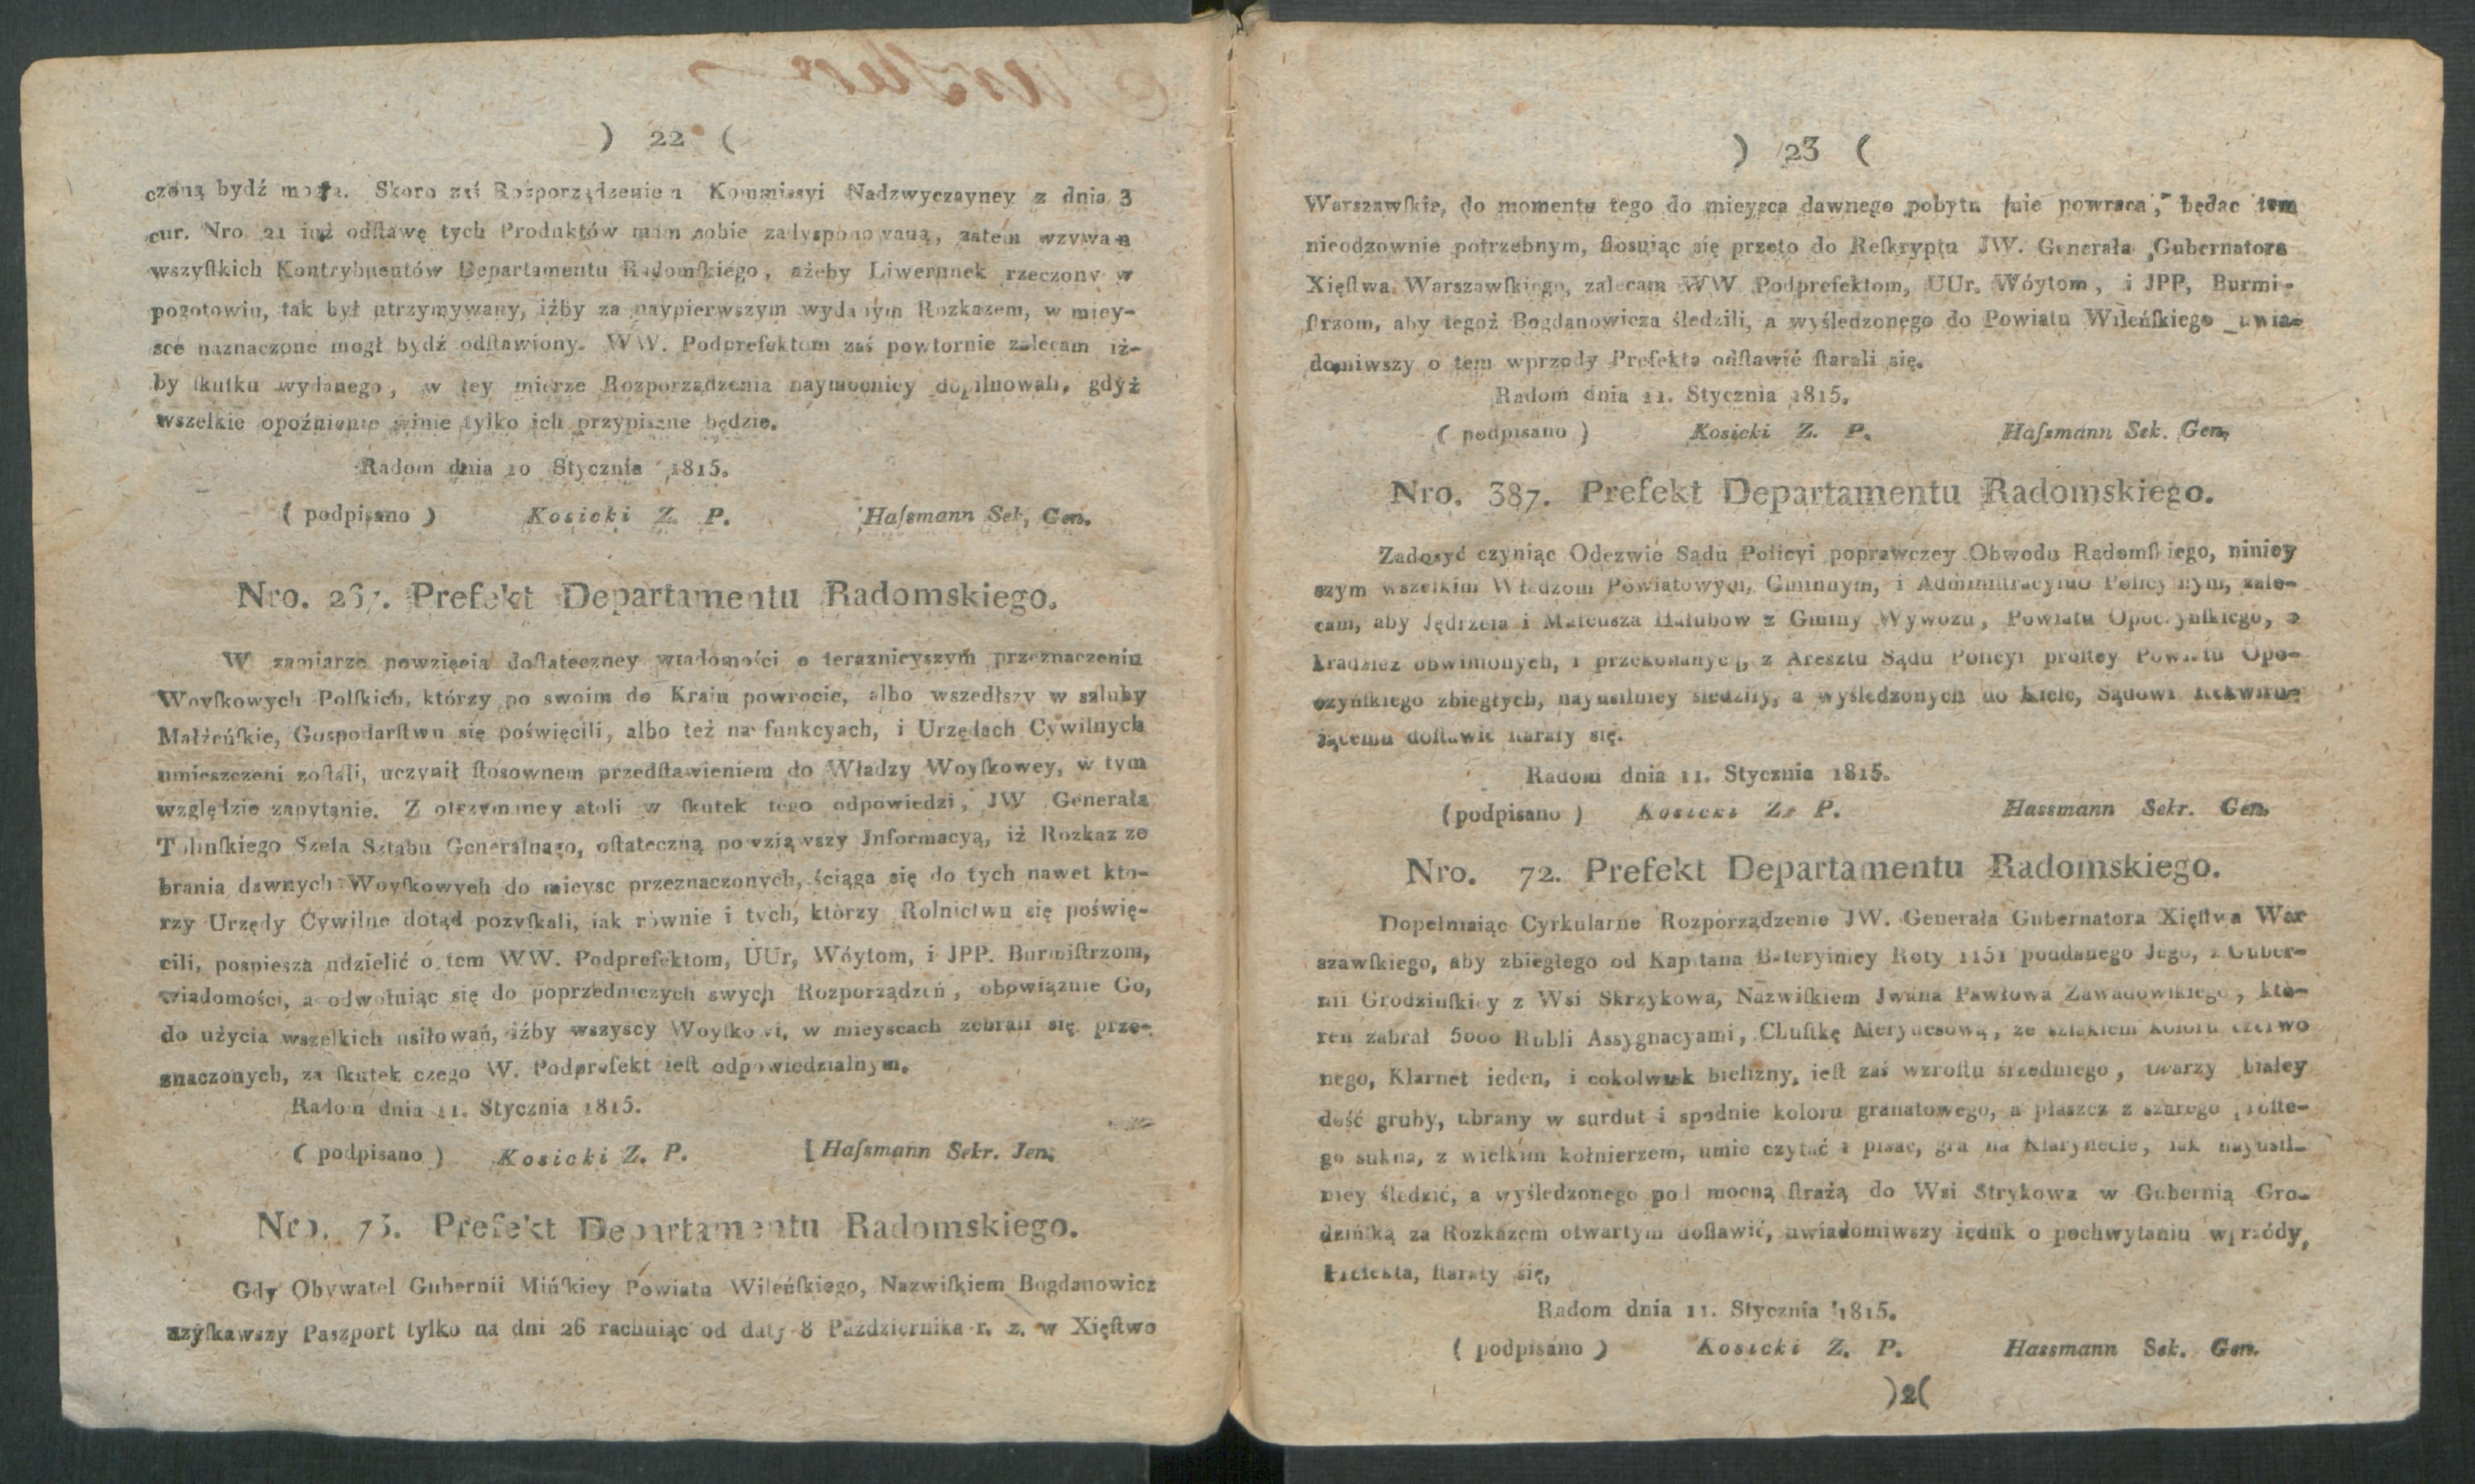 ) 22 (
czoną bydź mogła. Skoro zaś Rozporządzeniem Kommissyi Nadzwyczayney z dnia 3
cur. Nro 21 iuż odſtawę tych Produktów mam sobie zadysponowaną, zatem wzywam
wszyſtkich Kontrybuentów Departamentu Radomſkiego, ażeby Liwerunek rzeczony w
pogotowiu, tak był utrzymywany, iżby za naypierwszym wydanym Rozkazem, w miey-
sce naznaczone mogł bydź odſtawiony. WW. Podprefektom zaś powtornie zalecam iż-
by ſkutku wydanego, w tey mierze Rozporządzenia naymocniey dopilnowali, gdyż
wszelkie opoźnienie winie tylko ich przypisane będzie.
Radom dnia 10 Stycznia 1815.
( podpisano ) Kosicki Z. P. Haſsmann Sek, Gen.
Nro. 267. Prefekt Departamentu Radomskiego.
W zamiarze powzięcia doſtateczney wiadomości o teraznieyszym przeznaczeniu
Woyſkowych Polſkich, którzy po swoim do Kraiu powrocie, albo wszedłszy w szluby
Małżeńſkie, Gospodarſtwu się poświęcili, albo też na funkcyach, i Urzędach Cywilnych
umieszczeni zoſtali, uczynił ſtosownem przedſtawieniem do Władzy Woyſkowey, w tym
względzie zapytanie. Z otrzymaney atoli w ſkutek tego odpowiedzi, JW Generała
Tolinſkiego Szefa Sztabu Generalnago, oſtateczną powziąwszy Jnformacyą, iż Rozkaz ze
brania dawnych Woyſkowych do mieysc przeznaczonych, ściąga się do tych nawet kto-
rzy Urzędy Cywilne dotąd pozyſkali, iak rownie i tych, którzy Rolnictwu się poświę-
cili, pospiesza udzielić o tem WW. Podprefektom, UUr, Wóytom, i JPP. Burmiſtrzom,
wiadomości, a odwołuiąc się do poprzedniczych swych Rozporządzeń, obowiązuie Go,
do użycia wszelkich usiłowań, iżby wszyscy Woyſkowi, w mieyscach zebrali się prze-
znaczonych, za ſkutek czego W. Podprefekt ieſt odpowiedzialnym.
Radom dnia 11. Stycznia 1815.
( podpisano ) Kosicki Z. P. [ Haſsmann Sekr. Jen.
Nro. 75. Prefekt Departamentu Radomskiego.
Gdy Obywatel Gubernii Mińſkiey Powiatu Wileńſkiego, Nazwiſkiem Bogdanowicz
uzyſkawszy Paszport tylko na dni 26 rachuiąc od daty 8 Października r. z. w Xięſtwo
) 23 (
Warszawſkie, do momentu tego do mieysca dawnego pobytu nie powraca, będac tem
nieodzownie potrzebnym, ſtosuiąc się przeto do Reſkryptu JW. Generała Gubernatora
Xięſtwa Warszawſkiego, zalecam WW Podprefektom, UUr. Wóytom, i JPP, Burmi-
ſtrzom, aby tegoż Bogdanowicza śledzili, a wyśledzonego do Powiatu Wileńſkiego uwia-
domiwszy o tem wprzody Prefekta odſtawić ſtarali się.
Radom dnia 11. Stycznia 1815.
( podpisano ) Kosicki Z. P. Haſsmann Sek. Gen,
Nro. 387. Prefekt Departamentu Radomskiego.
Zadosyć czyniąc Odezwie Sądu Policyi poprawczey Obwodu Radomſkiego, niniey
szym wszelkim Władzom Powiatowym, Gminnym, i Adminiſtracyino Policyinym, zale-
cam, aby Jędrzeia i Mateusza Hałubow z Gminy Wywozu, Powiatu Opoczynſkiego, o
kradzież obwinionych, i przekonanych, z Aresztu Sądu Policyi proſtey Powiatu Opo-
czyńſkiego zbiegłych, nayusilniey śledziły, a wyśledzonych do Kielc, Sądowi Rekwiru-
iącemu doſtawić ſtarały się.
Radom dnia 11. Stycznia 1815.
(podpisano ) Kosicki Z. P. Hassmann Sekr. Gen.
Nro. 72. Prefekt Departamentu Radomskiego.
Dopełniaiąc Cyrkularne Rozporządzenie JW. Generała Gubernatora Xięſtwa War
szawſkiego, aby zbiegłego od Kapitana Bateryiniey Roty 1151 poddanego Jego, z Guber-
nii Grodzinſkiey z Wsi Skrzykowa, Nazwiſkiem Jwana Pawłowa Zawadowſkiego, któ-
ren zabrał 5000 Rubli Assygnacyami, Chuſtkę Merynesową, ze szlakiem koloru czerwo
nego, Klarnet ieden, i cokolwiek bielizny, ieſt zaś wzroſtu srzedniego, twarzy białey
dość gruby, ubrany w surdut i spodnie koloru granatowego, a płaszcz z szarego proſte-
go sukna, z wielkim kołnierzem, umie czytać i pisac, gra na Klarynecie, iak nayusil-
niey śledzić, a wyśledzonego pod mocną ſtrażą do Wsi Strykowa w Gubernią Gro-
dzińſką za Rozkazem otwartym doſtawić, uwiadomiwszy iednk o pochwytaniu wprzódy,
Prefekta, ſtarały się,
Radom dnia 11. Stycznia 1815.
( podpisano ) Kosicki Z. P. Hassmann Sek. Gen.
)2(